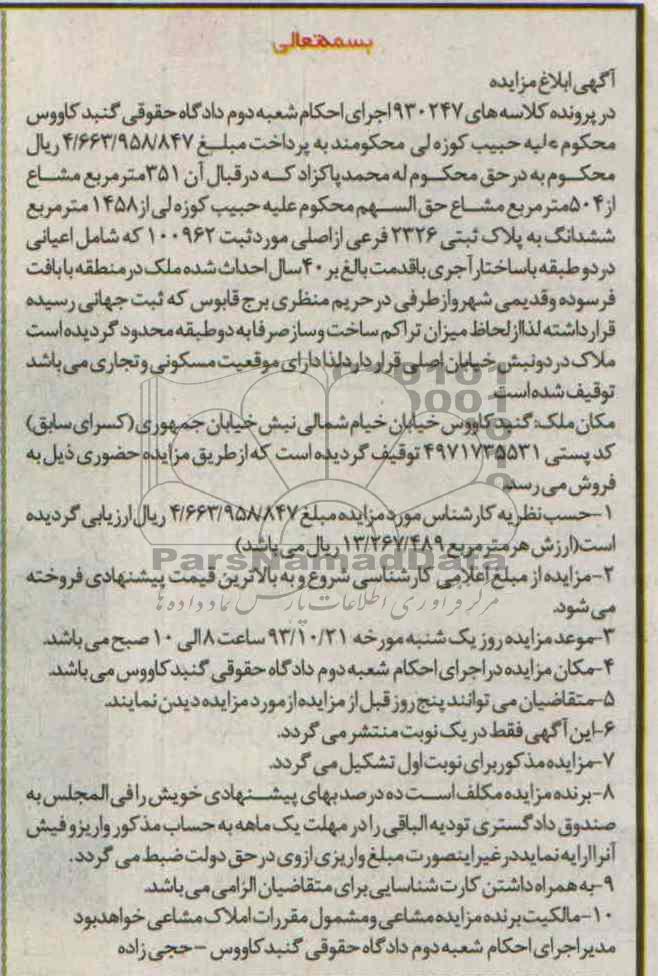 بسمه‌تعالی
آگهی ابلاغ مزایده
در پرونده کلاسه های ۹۳۰۲۴۷ اجرای احکام شعبه دوم دادگاه حقوقی گنبد کاووس
محکوم علیه حبیب کوزه لی محکومند به پرداخت مبلغ ۴/۶۶۳/۹۵۸/۸۴۷ ریال
محکوم به در حق محکوم له محمد پاکزاد که در قبال آن ۳۵۱ مترمربع مشاع
از ۵۰۴ متر مربع مشاع حق السهم محکوم علیه حبیب کوزه لی از ۱۴۵۸ مترمربع
ششدانگ به پلاک ثبتی ۲۳۲۶ فرعی از اصلی مورد ثبت ۱۰۰۹۶۲ که شامل اعیانی
در دو طبقه با ساختار آجری با قدمت بالغ بر ۴۰ سال احداث شده ملک در منطقه با بافت
فرسوده و قدیمی شهر و از طرفی در حریم منظری برج قابوس که ثبت جهانی رسیده
قرار داشته لذا از لحاظ میزان تراکم ساخت و ساز صرفا به دو طبقه محدود گردیده است
ملاک در دو نبش خیابان اصلی قرار دارد لذا دارای موقعیت مسکونی و تجاری می باشد
توقیف شده است.
مکان ملک: گنبد کاووس خیابان خیام شمالی نبش خیابان جمهوری (کسرای سابق)
کد پستی ۴۹۷۱۷۳۵۵۳۱ توقیف گردیده است که از طریق مزایده حضوری ذیل به
فروش می رسد.
۱-حسب نظریه کارشناس مورد مزایده مبلغ ۴/۶۶۳/۹۵۸/۸۴۷ ریال ارزیابی گردیده
است(ارزش هر مترمربع ۱۳/۲۶۷/۴۸۹ ریال می باشد)
ParsNamadData
۲-مزایده از مبلغ اعلامی کارشناسی شروع و به بالاترین قیمت پیشنهادی فروخته
می شود.
مرکز فرآوری اطلاعات پارس نماد داده ها
۳-موعد مزایده روز یک شنبه مورخه ۹۳/۱۰/۲۱ ساعت ۸ الی ۱۰ صبح می باشد.
۴-مکان مزایده در اجرای احکام شعبه دوم دادگاه حقوقی گنبد کاووس می باشد.
۵-متقاضیان می توانند پنج روز قبل از مزایده از مورد مزایده دیدن نمایند.
۶-این آگهی فقط در یک نوبت منتشر می گردد.
۷-مزایده مذکور برای نوبت اول تشکیل می گردد.
۸-برنده مزایده مکلف است ده درصد بهای پیشنهادی خویش را فی المجلس به
صندوق دادگستری تودیه الباقی را در مهلت یک ماهه به حساب مذکور واریز و فیش
آنرا ارایه نماید در غیر اینصورت مبلغ واریزی از وی در حق دولت ضبط می گردد.
۹-به همراه داشتن کارت شناسایی برای متقاضیان الزامی می باشد.
۱۰-مالکیت برنده مزایده مشاعی و مشمول مقررات املاک مشاعی خواهد بود
مدیر اجرای احکام شعبه دوم دادگاه حقوقی گنبد کاووس – حجی زاده